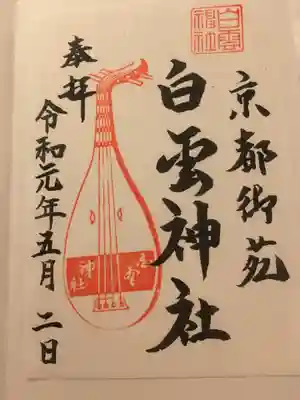 京都御苑
白雲
神社
白雲神社
奉拝
白雲
神社
令和元年五月二日